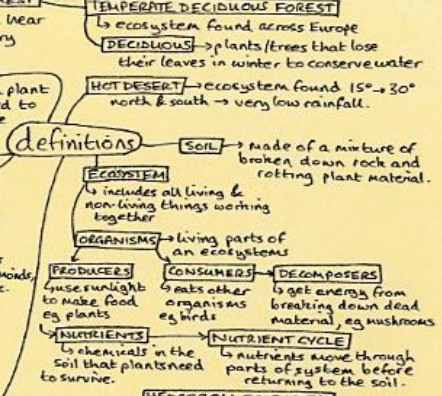 TEMPERATE DECIDUOUS FOREST
↳ ecosystem found across Europe
DECIDUOUS → plants/trees that lose
their leaves in winter to conserve water
HOT DESERT → ecosystem found 15° → 30°
north & south → very low rainfall.
definitions
SOIL → made of a mixture of
broken down rock and
rotting plant material.
ECOSYSTEM
↳ includes all living &
non-living things working
together
ORGANISMS → living parts of
an ecosystems
PRODUCERS
↳ use sunlight
to make food
eg plants
CONSUMERS
↳ eats other
organisms
eg birds
DECOMPOSERS
↳ get energy from
breaking down dead
material, eg mushrooms
NUTRIENTS
↳ chemicals in the
soil that plants need
to survive.
NUTRIENT CYCLE
↳ nutrients move through
parts of system before
returning to the soil.
plant